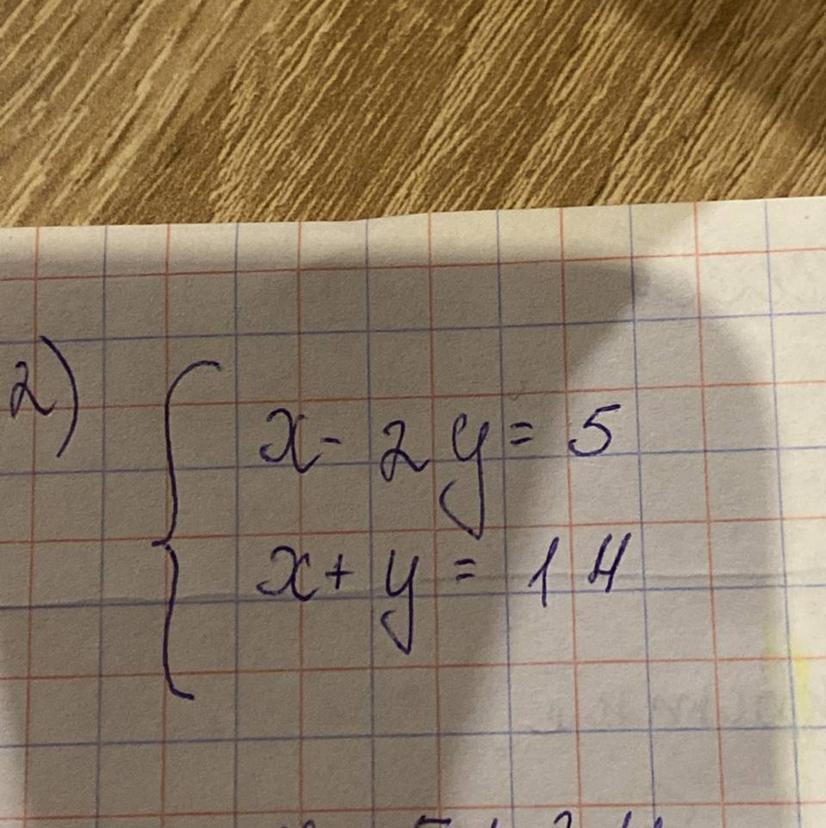 2)
x - 2y = 5
x + y = 14